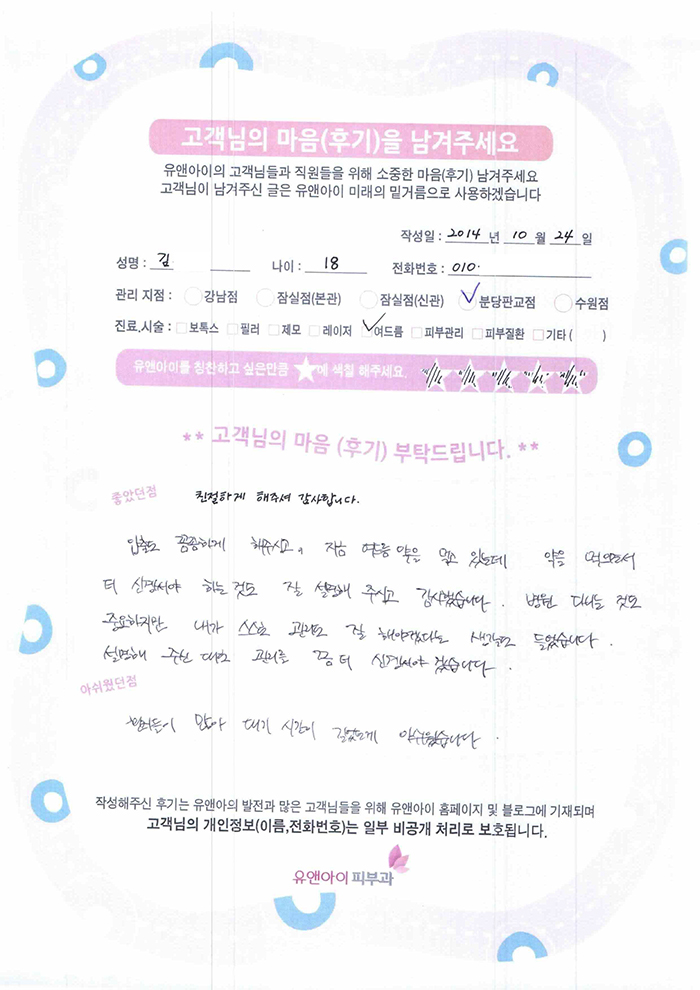 고객님의 마음(후기)을 남겨주세요
유앤아이의 고객님들과 직원들을 위해 소중한 마음(후기) 남겨주세요
고객님이 남겨주신 글은 유앤아이 미래의 밑거름으로 사용하겠습니다
작성일 : 2014 년 10 월 24 일
성명 : 김 나이 : 18 전화번호 : 010.
관리 지점 : 강남점 잠실점(본관) 잠실점(신관) 분당판교점 수원점
진료,시술 : 보톡스 필러 제모 레이저 여드름 피부관리 피부질환 기타 ( )
유앤아이를 칭찬하고 싶은만큼 ★에 색칠 해주세요.
** 고객님의 마음 (후기) 부탁드립니다. **
좋았던점 친절하게 해주셔 감사합니다.
압출도 꼼꼼하게 해주시고, 지금 여드름 약을 먹고 있는데 약을 먹으면서
더 신경써야 하는것도 잘 설명해 주시고 감사했습니다. 병원 다니는 것도
중요하지만 내가 스스로 관리도 잘 해야겠다는 생각도 들었습니다.
설명해 주신 대로 관리를 좀 더 신경써야 겠습니다.
아쉬웠던점
환자들이 많아 대기 시간이 길었던게 아쉬웠습니다.
작성해주신 후기는 유앤아의 발전과 많은 고객님들을 위해 유앤아이 홈페이지 및 블로그에 기재되며
고객님의 개인정보(이름,전화번호)는 일부 비공개 처리로 보호됩니다.
유앤아이피부과